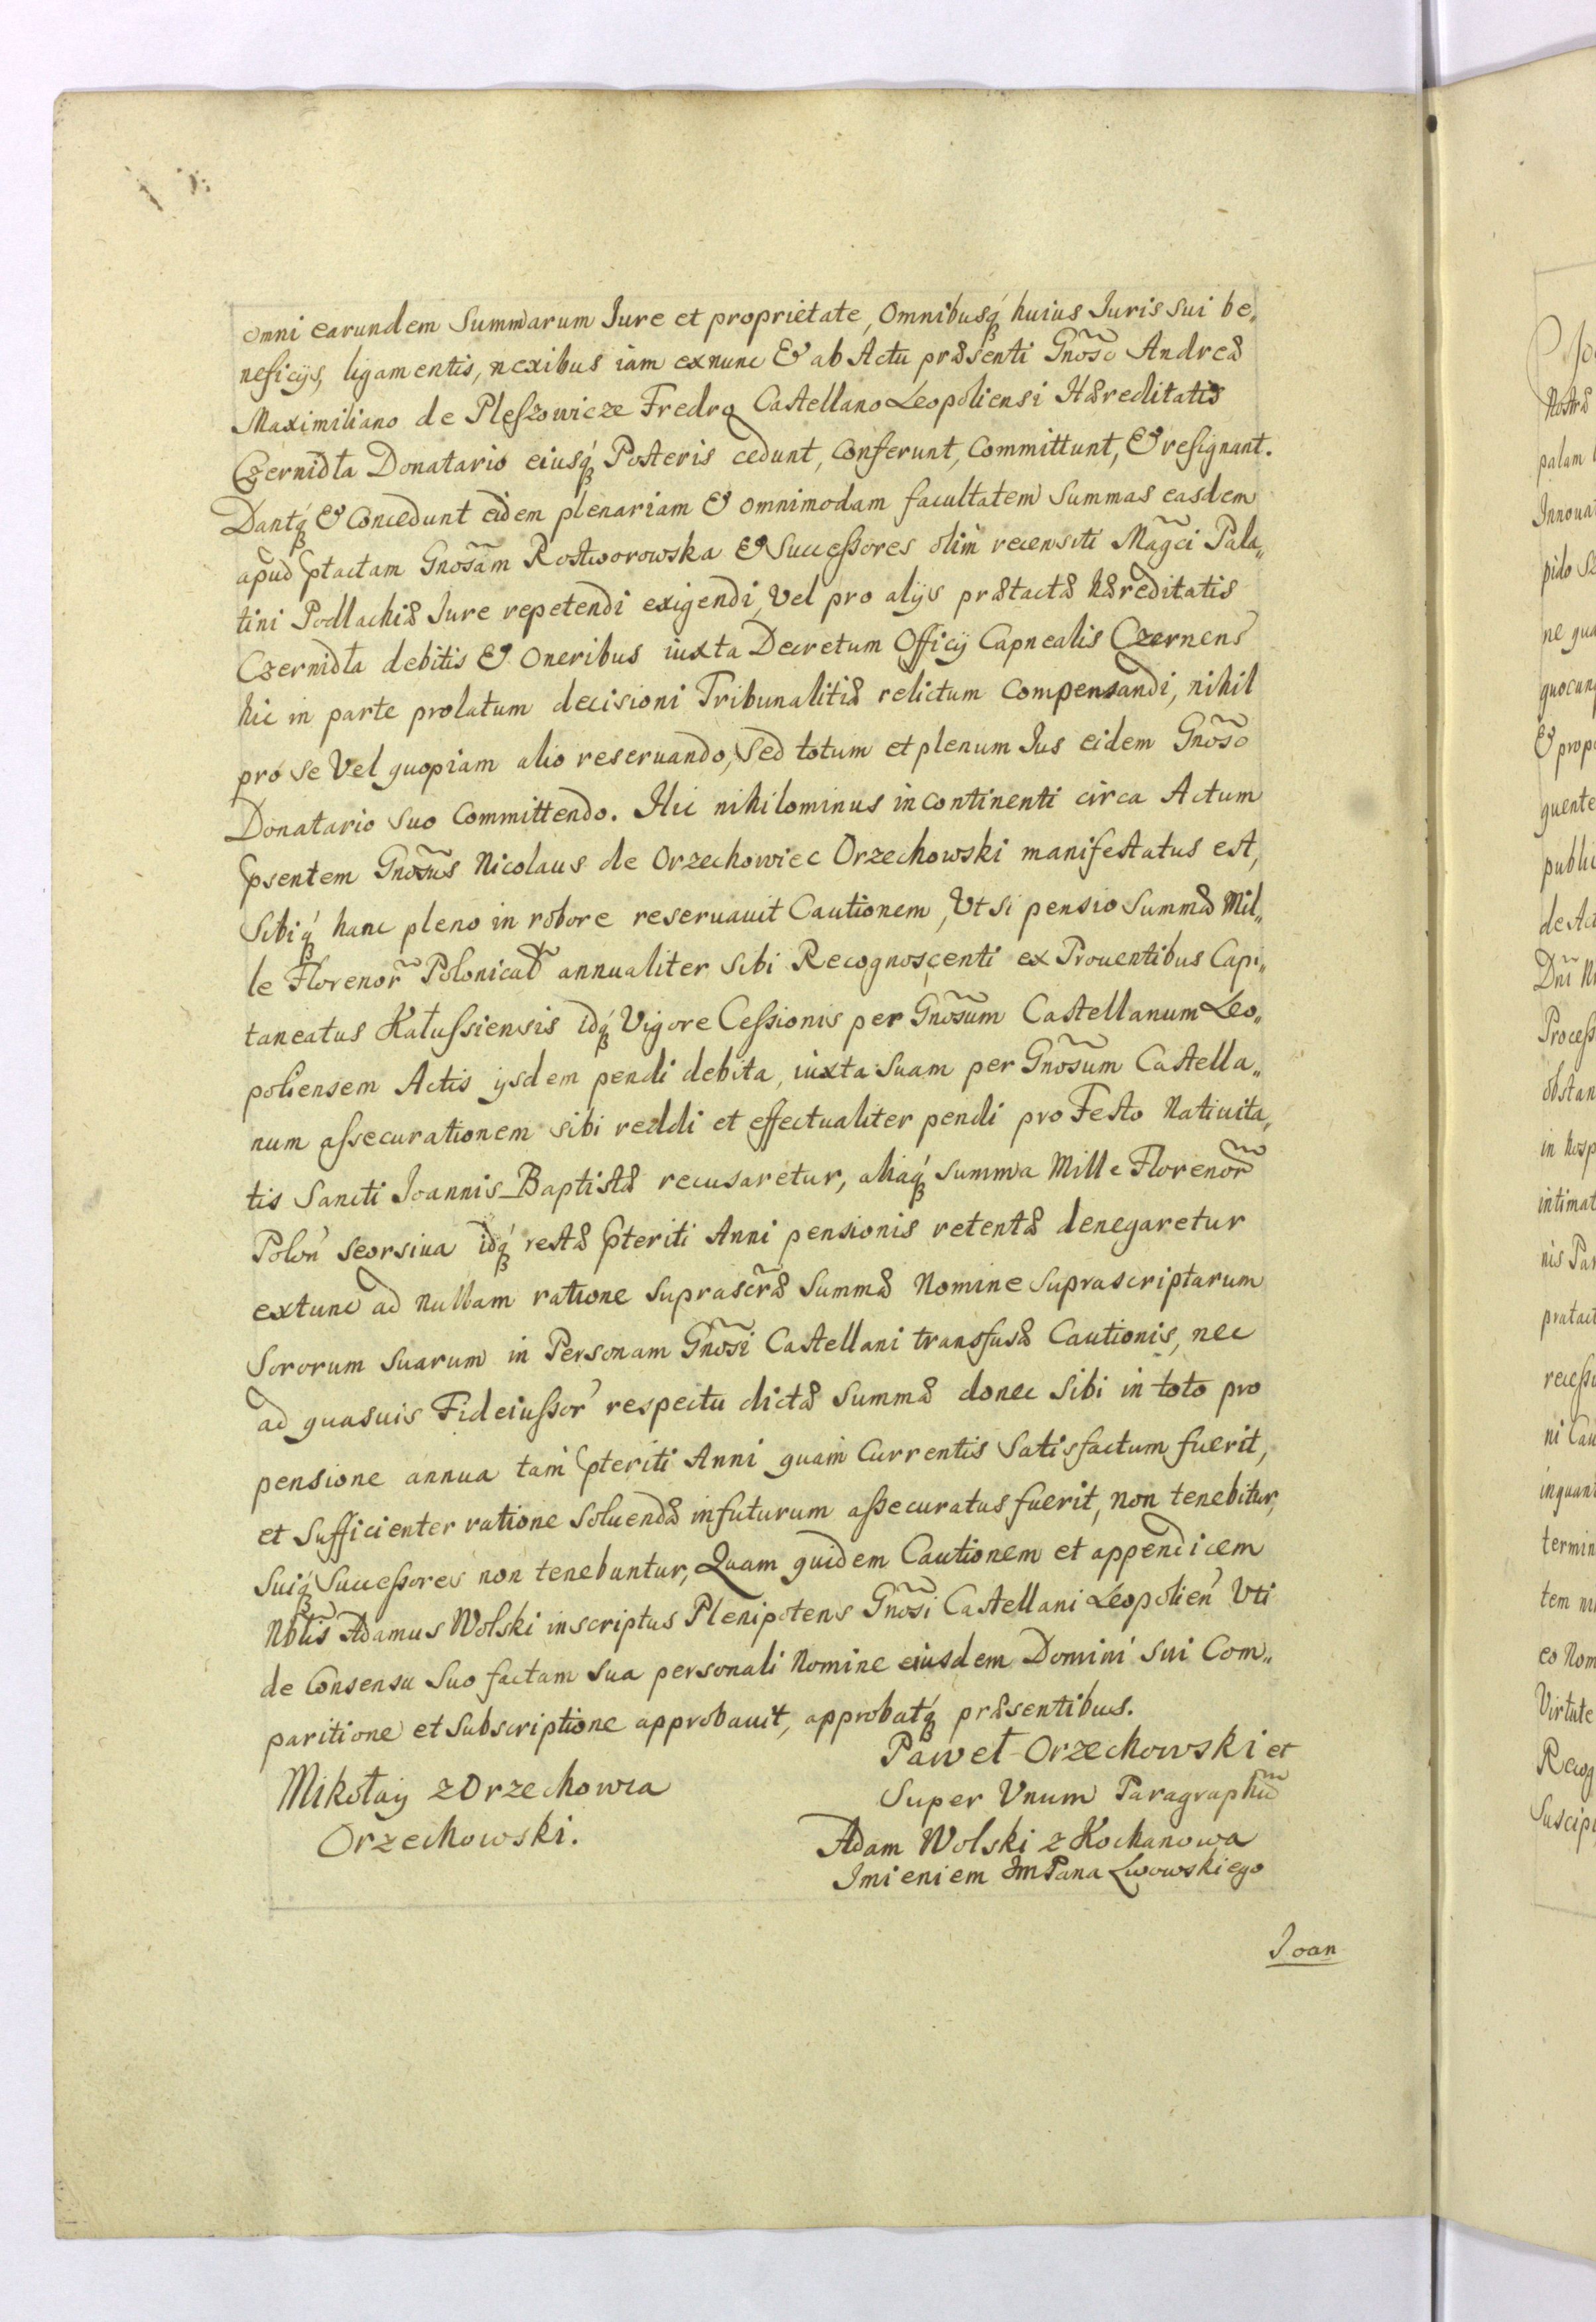 omni earundem Summarum Jure et proprietate, Omnibusq́ꝫ huius Juris sui be„
neficijs, ligamentis, nexibus iam exnunc & ab Actu præsenti Gnõso Andreæ
Maximiliano de Pleſzowicze Fredro Castellano Leopoliensi Hæreditatis
Czernidła Donatario eiusq́ꝫ Posteris cedunt, Conferunt, Committunt, & resignant.
Dantq́ꝫ & Concedunt eidem plenariam & omnimodam facultatem Summas easdem
apud ꝓtactam Gnosãm Rostworowska & Succeſsores olim recensiti Mag̃ci Pala„
tini Podlachiæ Jure repetendi exigendi, Vel pro alijs prætactæ hæreditatis
Czernidła debitis & Oneribus iuxta Decretum Officij Capnealis Czernens̉
hic in parte prolatum decisioni Tribunalitiæ relictum Compensandi, nihil
pro se Vel quopiam alio reseruando, Sed totum et plenum Jus eidem Gnõso
Donatario suo Committendo. Hic nihilominus incontinenti circa Actum
ꝓsentem Gnõsus Nicolaus de Orzechowiec Orzechowski manifestatus est,
Sibiq́ꝫ hanc pleno in robore reseruauit Cautionem, Ut si pensio Summæ Mil„
le Florenor̃ Polonical̃ annualiter sibi Recognoscenti ex Prouentibus Capi„
taneatus Kałuſsiensis idq́ꝫ Vigore Ceſsionis per Gnõsum Castellanum Leo„
poliensem Actis ijsdem pendi debita, iuxta suam per Gnõsum Castella„
num aſsecurationem sibi reddi et effectualiter pendi pro Festo Natiuita„
tis Sancti Joannis Baptistæ recusaretur, aliaq́ꝫ summa Mille Florenor̃
Polon̉ seorsiua idq́ꝫ restæ ꝓteriti Anni pensionis retentæ denegaretur
extunc ad nullam ratione suprascr̃æ Summæ Nomine suprascriptarum
Sororum suarum in Personam Gnõsi Castellani transfusæ Cautionis, nec
ad quasuis Fideiuſsor̉ respectu dictæ Summæ donec Sibi in toto pro
pensione annua tam ꝓteriti Anni quam Currentis Satisfactum fuerit,
et Sufficienter ratione Soluendæ infuturum aſsecuratus fuerit, non tenebitur,
Suiq́ꝫ Succeſsores non tenebuntur, Quam quidem Cautionem et appendicem
Nblĩs Adamus Wolski inscriptus Plenipotens Gnõsi Castellani Leopolien̉ Uti
de Consensu Suo factam sua personali Nomine eiusdem Domini sui Com„
paritione et Subscriptione approbauit, approbatq́ꝫ præsentibus.
Paweł Orzechowski et
Mikołay z Orzechowca
Super Vnum Paragraphũ
Orzechowski.
Adam Wolski z Kochanowa
Jmieniem JmPana Lwowskiego
Joan